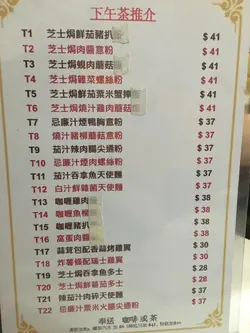 下午茶推介
T1 芝士焗鮮茄豬扒 $ 41
T2 芝士焗肉醬意粉 $ 41
T3 芝士焗蜆肉蘑菇 $ 41
T4 芝士焗雜菜螺絲粉 $ 41
T5 芝士焗鮮茄粟米蟹柳 $ 41
T6 芝士焗燒汁雞肉蘑菇 $ 41
T7 忌廉汁煙鴨胸意粉 $ 37
T8 燒汁豬柳蘑菇意粉 $ 37
T9 茄汁辣肉腸尖通粉 $ 37
T10 忌廉汁煙肉螺絲粉 $ 37
T11 茄汁吞拿魚天使麵 $ 37
T12 白汁鮮雜菌天使麵 $ 37
T13 咖喱雞肉 $ 38
T14 咖喱魚柳 $ 38
T15 咖喱豬扒 $ 38
T16 富蛋肉醬 $ 30
T17 蒜茸包配香蒜烤雞翼 $ 30
T18 炸薯條配瑞士雞翼 $ 30
T19 芝士焗吞拿魚多士 $ 30
T20 芝士焗鮮蕃茄多士 $ 30
T21 辣茄汁肉碎天使麵 $ 37
T22 忌廉汁粟米火腿尖通粉 $ 37
奉送 咖啡 或 茶